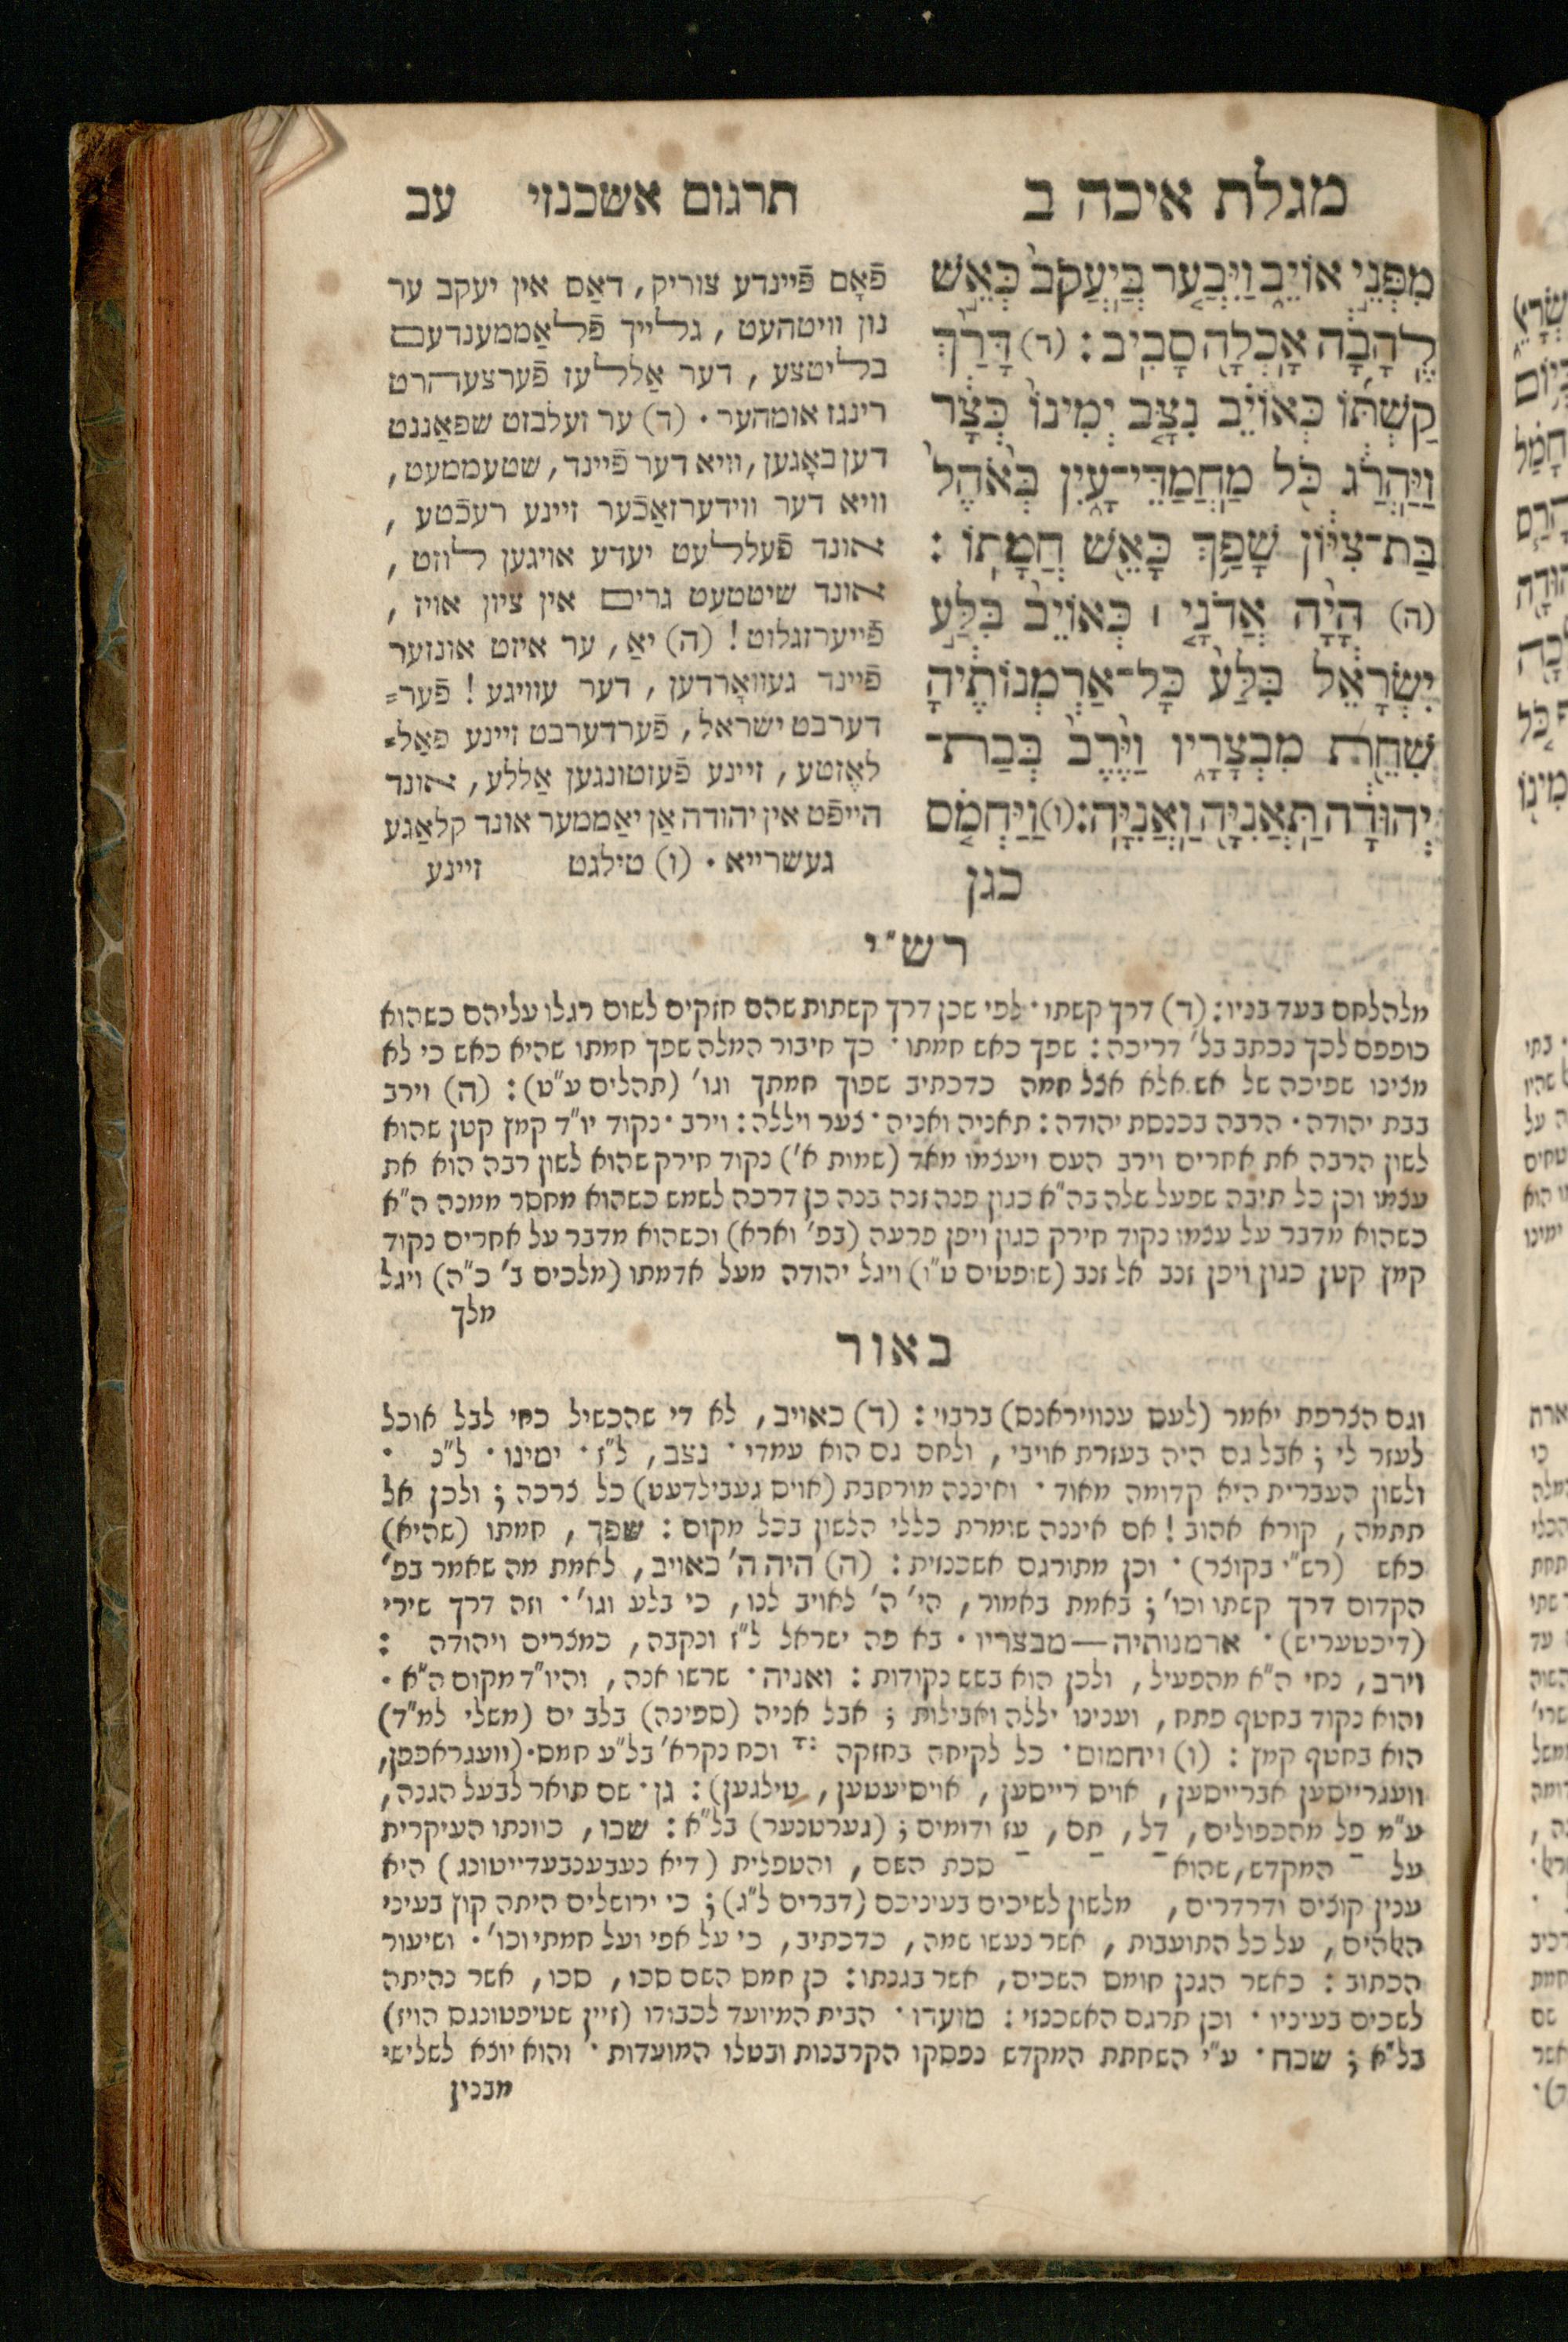 מגלת איכה ב
מִפְּנֵ֣י אוֹיֵ֑ב וַיִּבְעַ֤ר בְּיַעֲקֹב֙ כְּאֵ֣שׁ
לֶֽהָבָ֔ה אָכְלָ֖ה סָבִֽיב : (ד) דָּרַ֨ךְ
קַשְׁתּ֜וֹ כְּאוֹיֵ֗ב נִצָּ֤ב יְמִינוֹ֙ כְּצָ֔ר
וַֽיַּהֲרֹ֔ג כֹּ֖ל מַחֲמַדֵּי־עָ֑יִן בְּאֹ֙הֶל֙
בַּת־צִיּ֔וֹן שָׁפַ֥ךְ כָּאֵ֖שׁ חֲמָתֽוֹ :
(ה) הָיָ֨ה אֲדֹנָ֤י ׀ כְּאוֹיֵב֙ בִּלַּ֣ע
יִשְׂרָאֵ֔ל בִּלַּע֙ כָּל־אַרְמְנוֹתֶ֔יהָ
שִׁחֵ֖ת מִבְצָרָ֑יו וַיֶּ֙רֶב֙ בְּבַת־
יְהוּדָ֔ה תַּאֲנִיָּ֖ה וַאֲנִיָּֽה : (ו) וַיַּחְמֹ֤ס
כגן
תרגום אשכנזי עב
פֿאָם פֿיינדע צוריק, דאַס אין יעקב ער
נון וויטהעט, גלייך פֿלאַממענדעם
בליטצע, דער אַללעז פֿערצעהרט
רינגז אומהער. (ד) ער זעלבזט שפאַננט
דען באָגען, וויא דער פֿיינד, שטעממעט,
וויא דער ווידערזאַכֿער זיינע רעכֿטע,
אונד פֿעללעט יעדע אויגען לוזט,
אונד שיטטעט גרים אין ציון אויז,
פֿייערזגלוט! (ה) יאַ, ער איזט אונזער
פֿיינד געוואָרדען, דער עוויגע! פֿער=
דערבט ישראל, פֿערדערבט זיינע פאַל=
לאֶזטע, זיינע פֿעזטונגען אַללע, אונד
הייפֿט אין יהודה אַן יאַממער אונד קלאַגע
געשרייא. (ו) טילגט זיינע
רש"י
מלהלחם בעד בניו: (ד) דרך קשתו· לפי שכן דרך קשתות שהם חזקים לשום רגלו עליהם כשהוא
כופפם לכך נכתב בל' דריכה: שפך כאש חמתו· כך חיבור המלה שפך חמתו שהיא כאש כי לא
מצינו שפיכה של אש אלא אצל חמה כדכתיב שפוך חמתך וגו' (תהלים ע"ט): (ה) וירב
בבת יהודה· הרבה בכנסת יהודה: תאניה ואניה· צער ויללה: וירב· נקוד יו"ד קמץ קטן שהוא
לשון הרבה את אחרים וירב העם ויעצמו מאד (שמות א') נקוד חירק שהוא לשון רבה הוא את
עצמו וכן כל תיבה שפעל שלה בה"א כגון פנה זנה בנה כן דרכה לשמש כשהוא מחסר ממנה ה"א
כשהוא מדבר על עצמו נקוד חירק כגון ויפן פרעה (בפ' וארא) וכשהוא מדבר על אחרים נקוד
קמץ קטן כגון ויפן זנב אל זנב (שופטים ט"ו) ויגל יהודה מעל אדמתו (מלכים ב' כ"ה) ויגל
מלך
באור
וגם הצרפת יאמר (לעס ענוויראנס) ברבוי: (ד) כאויב, לא די שהכשיל כחי לבל אוכל
לעזר לי; אבל גם היה בעזרת אויבי, ולחם גם הוא עמדי· נצב, ל"ז· ימינו· ל"נ ·
ולשון העברית היא קדומה מאוד· ואיננה מורחבת (אויס געבילדעט) כל צרכה; ולכן אל
תתמה, קורא אהוב! אם איננה שומרת כללי הלשון בכל מקום: שפך, חמתו (שהיא)
כאש (רש"י בקוצר)· וכן מתורגם אשכנזית: (ה) היה ה' כאויב, לאמת מה שאמר בפ'
הקדום דרך קשתו וכו'; באמת באמור, הי' ה' לאויב לנו, כי בלע וגו'· וזה דרך שירי
(דיכטעריש)· ארמנותיה—מבצריו· בא פה ישראל ל"ז ונקבה, כמצרים ויהודה :
וירב, נחי ה"א מהפעיל, ולכן הוא בשש נקודות: ואניה· שרשו אנה, והיו"ד מקום ה"א·
והוא נקוד בחטף פתח, וענינו יללה ואבילות; אבל אניה (ספינה) בלב ים (משלי למ"ד)
הוא בחטף קמץ: (ו) ויחמוס· כל לקיחה בחזקה וכח נקרא' בל"ע חמס· (וועגראפפן,
וועגרייסען אברייסען, אויס רייסען, אויסיעטען, טילגען): גן· שם תואר לבעל הגנה,
ע"מ פל מהכפולים, דל, תם, עז ודומים; (גערטנער) בל"א: שכו, כוונתו העיקרית
על המקדש, שהוא סכת השם, והטפלית (דיא נעבענבעדייטונג) היא
ענין קוצים ודרדרים, מלשון לשיכים בעיניכם (דברים ל"ג); כי ירושלים היתה קוץ בעיני
האלהים, על כל התועבות, אשר נעשו שמה, כדכתיב, כי על אפי ועל חמתי וכו'· ושיעור
הכתוב: כאשר הגנן חומס השכים, אשר בגנתו: כן חמס השם סכו, סכו, אשר נהיתה
לשכים בעיניו· וכן תרגם האשכנזי: מועדו· הבית המיועד לכבודו (זיין שטיפטונגס הויז)
בל"א; שכח· ע"י השחתת המקדש נפסקו הקרבנות ובטלו המועדות· והוא יוצא לשלישי
מבנין